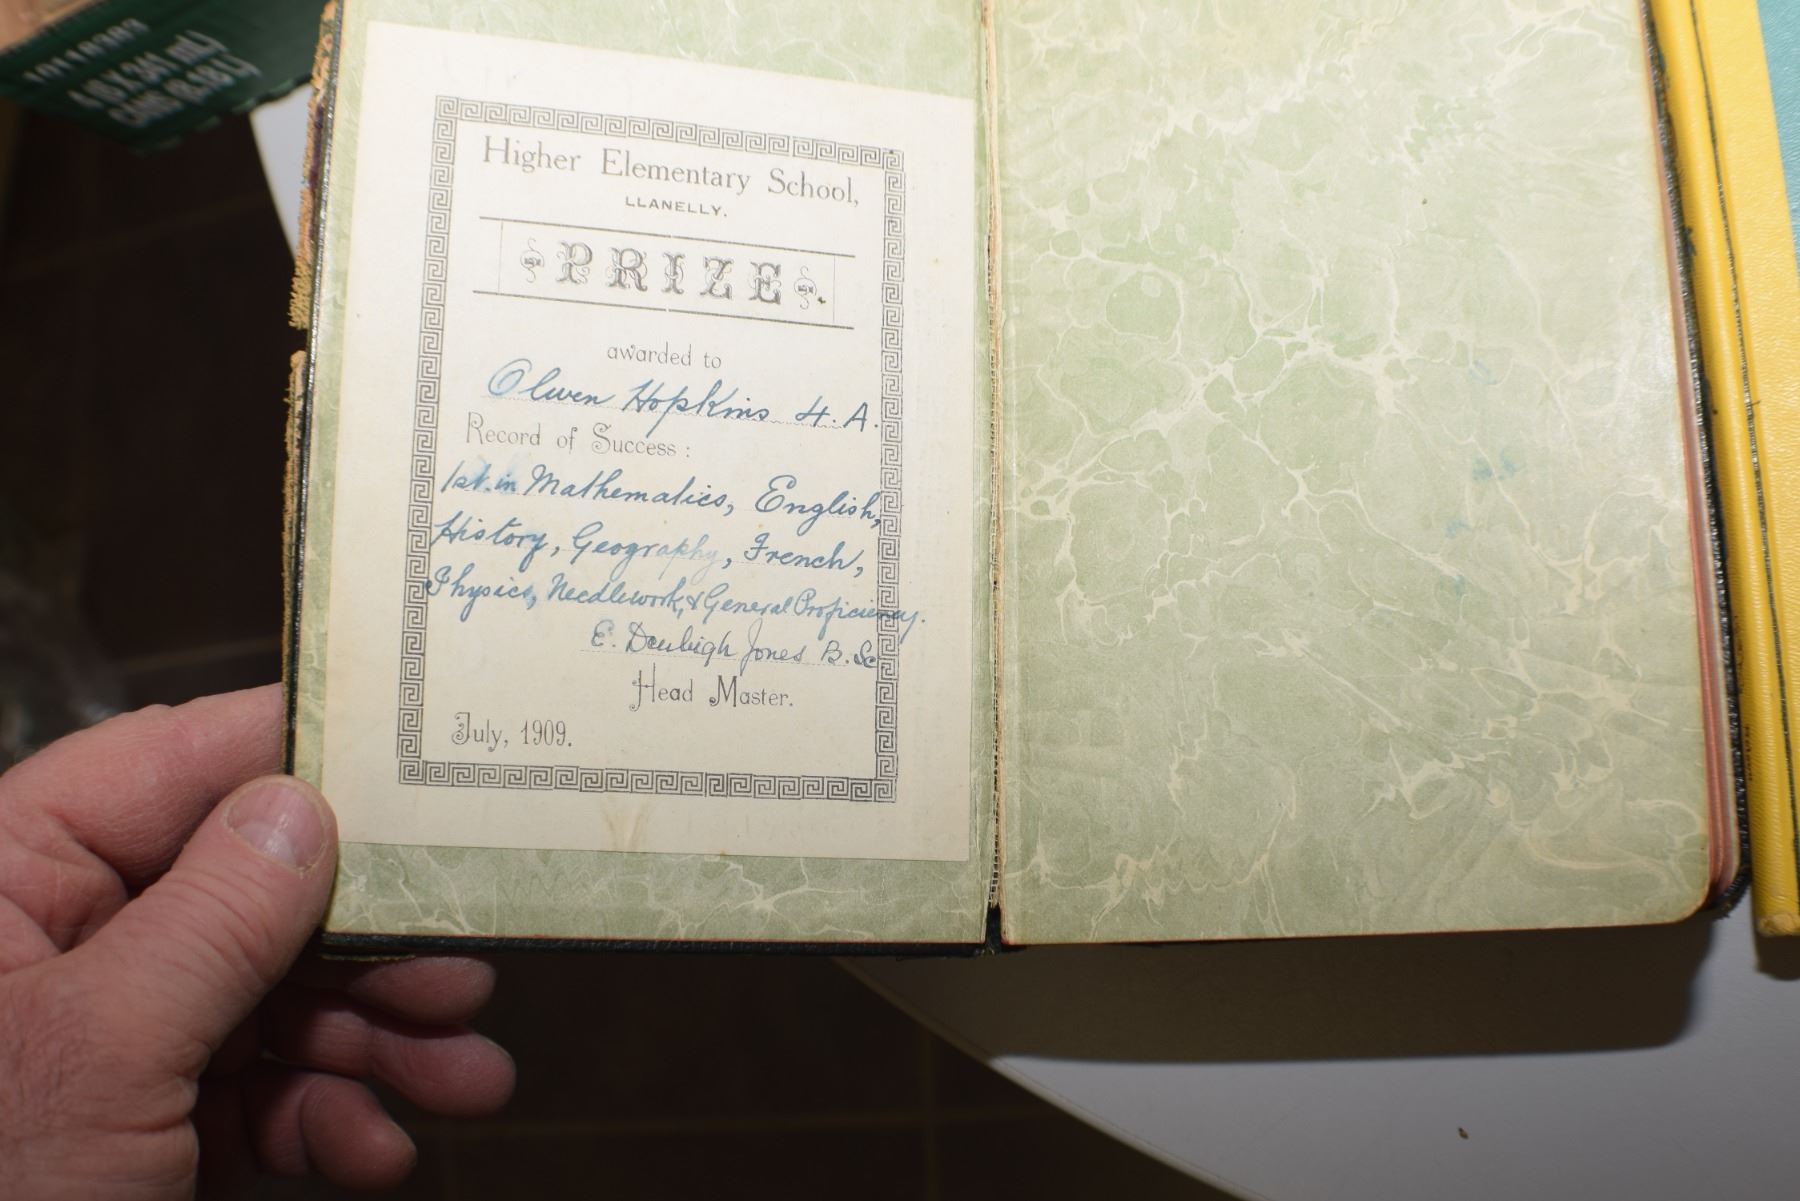 10110303
48 X 341 mL
CANS (16.18 L)
Higher Elementary School,
LLANELLY.
PRIZE
awarded to
Olwen Hopkins 4. A.
Record of Success :
1st in Mathematics, English,
History, Geography, French,
Physics, Needlework, & General Proficiency.
E. Denbigh Jones B. Sc
Head Master.
July, 1909.